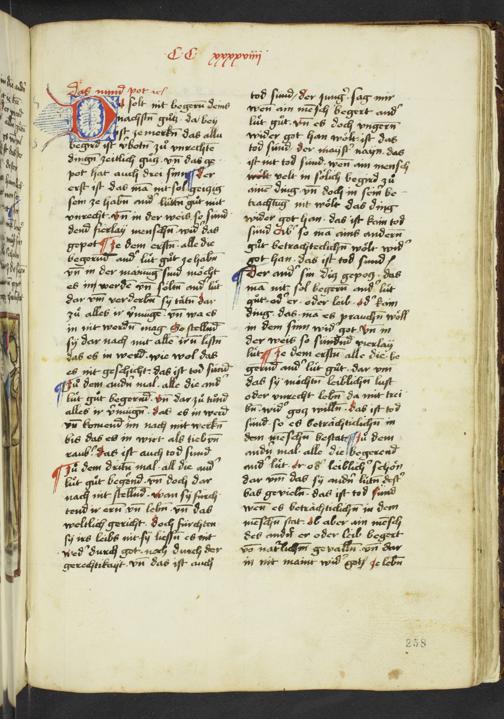 C C xxxxviiij
Das nund pot ist
Du solt nit begern deins
nächsten gut da bey
ist ze merken das alle
begird ist verboten zu unrechte
dingn zeitlich gutz vn das ge
pot hat auch drei sinn der
erst ist das man nit sol geitzig
sein ze habn and luten gut mit
unrecht vn in der weis so sund
 menschn wid das
gepot Ze dem ersten alle die
begernd and lut gut ze habn
vn in der mainug sind möcht
es in werde vn soltn and lut
dar vm verderbn sy tätn dar
zu alles ir vmuge vn wa es
in nit werdn mag
sy dar nach mit alle irn listn
das es in werd wie wol das
es nit geschicht das ist tod sund
Zu dem andn mal alle die and
lut gut begernd vn dar zu tund
alles ir vmugn das es in werd
vn komend im nach mit werkn
bis das es in wirt als diebn
raub das ist auch tod sund
Zu dem dritn mal all die and
lut gut begend vn doch dar
nach nit stellnd wan sy furch
tend ir ern vn lebn vn das
weltlich gericht doch furchten
sy irs leibs nit sy liessn es nit
wed durch got noch durch der
gerechtikayt vn das ist auch
tod sund der junger sag mir
wen ain mensch begert and
lut gut vn es doch ungern
wider got han wölt ist das
tod sund der maister nayn das
ist nit tod sund wen ain mensch
velt in solich begird zu
aine ding vn doch in seim be
trachtug nit wölt das ding
wider got han das ist kain tod
sund ob so ma ains andern
gut betrachtelichn wölt wid
got han das ist tod sund
Der and sin dis gepotz das
ma nit sol begern and lut
gut od er oder leib od kain
ding das ma es prauchn wöll
in dem sinn wid got vn in
der weis so sundnd vierlay
lut Ze dem erstn alle die be
gernd and lut gut dar vm
das sy möchtn leiblichn lust
oder unrecht lebn da mit trei
bn wid gotz willn das ist tod
sund so es beträchtiklichn in
dem menschn bestat Zu dem
andn mal alle die begerend
and lut er od leiblich schön
dar vm das sy andn lutn dest
bas gevieln das ist tod sund
wen es beträchtiklichn in dem
menschn stat Ob aber ain mesch
des andn er oder leib begert
vo natürlichm gevalln vn dar
in nit maint wid gotz ze lebn
258